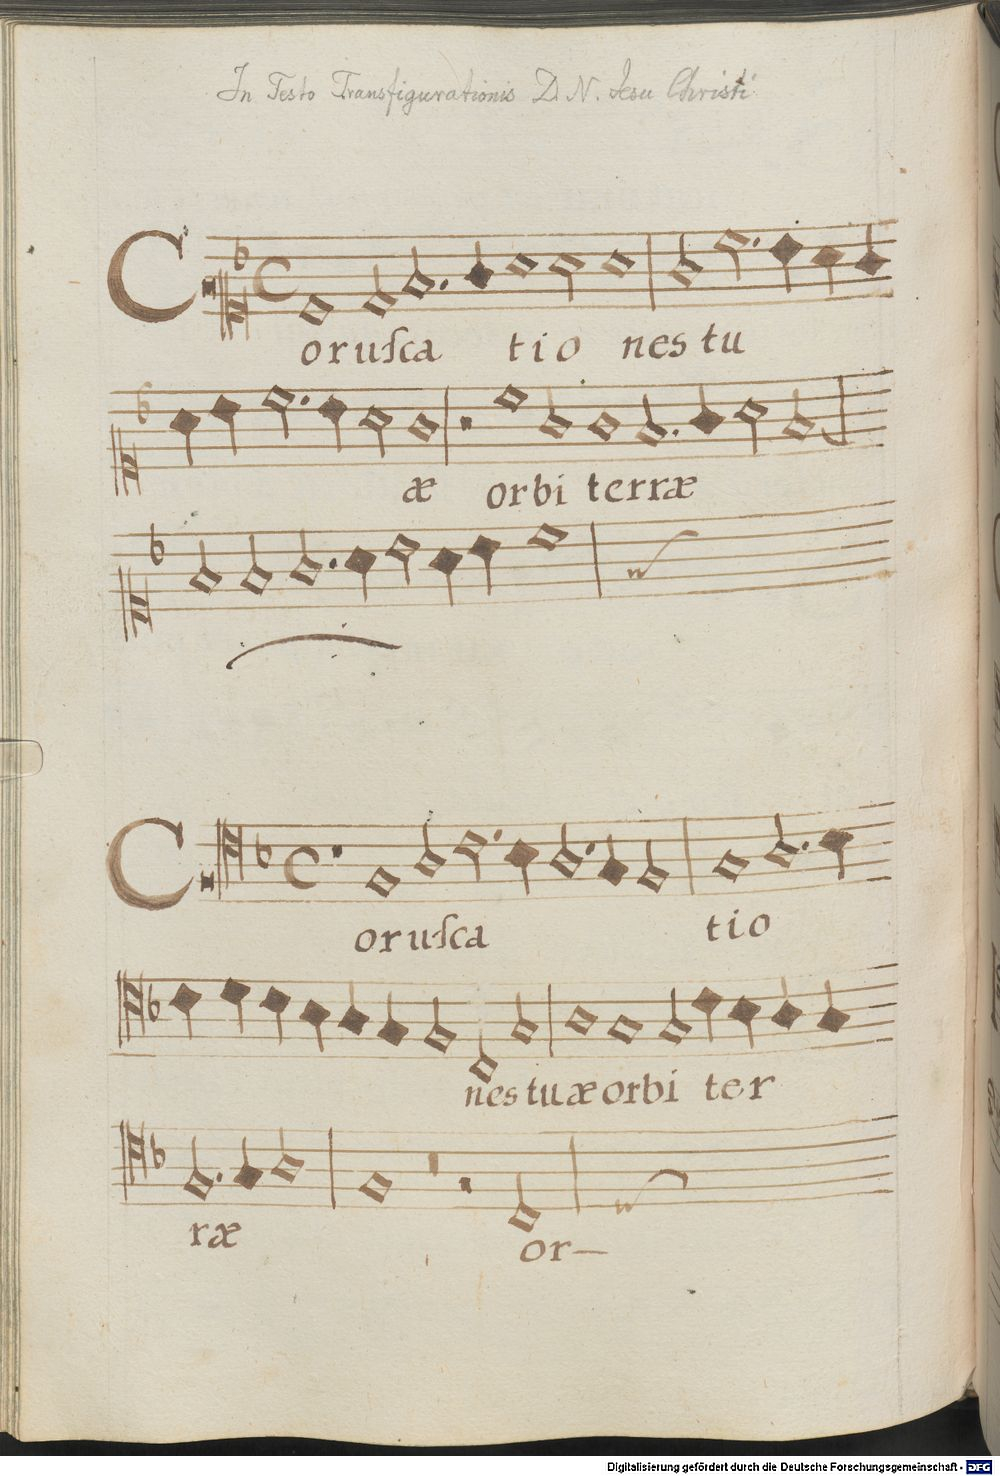 In Festo Transfigurationis D. N. Jesu Christi
Coruſca tio nes tu
æ orbi terræ
Coruſca tio
nes tuæ orbi ter
ræ or—
Digitalisierung gefördert durch die Deutsche Forschungsgemeinschaft - DFG